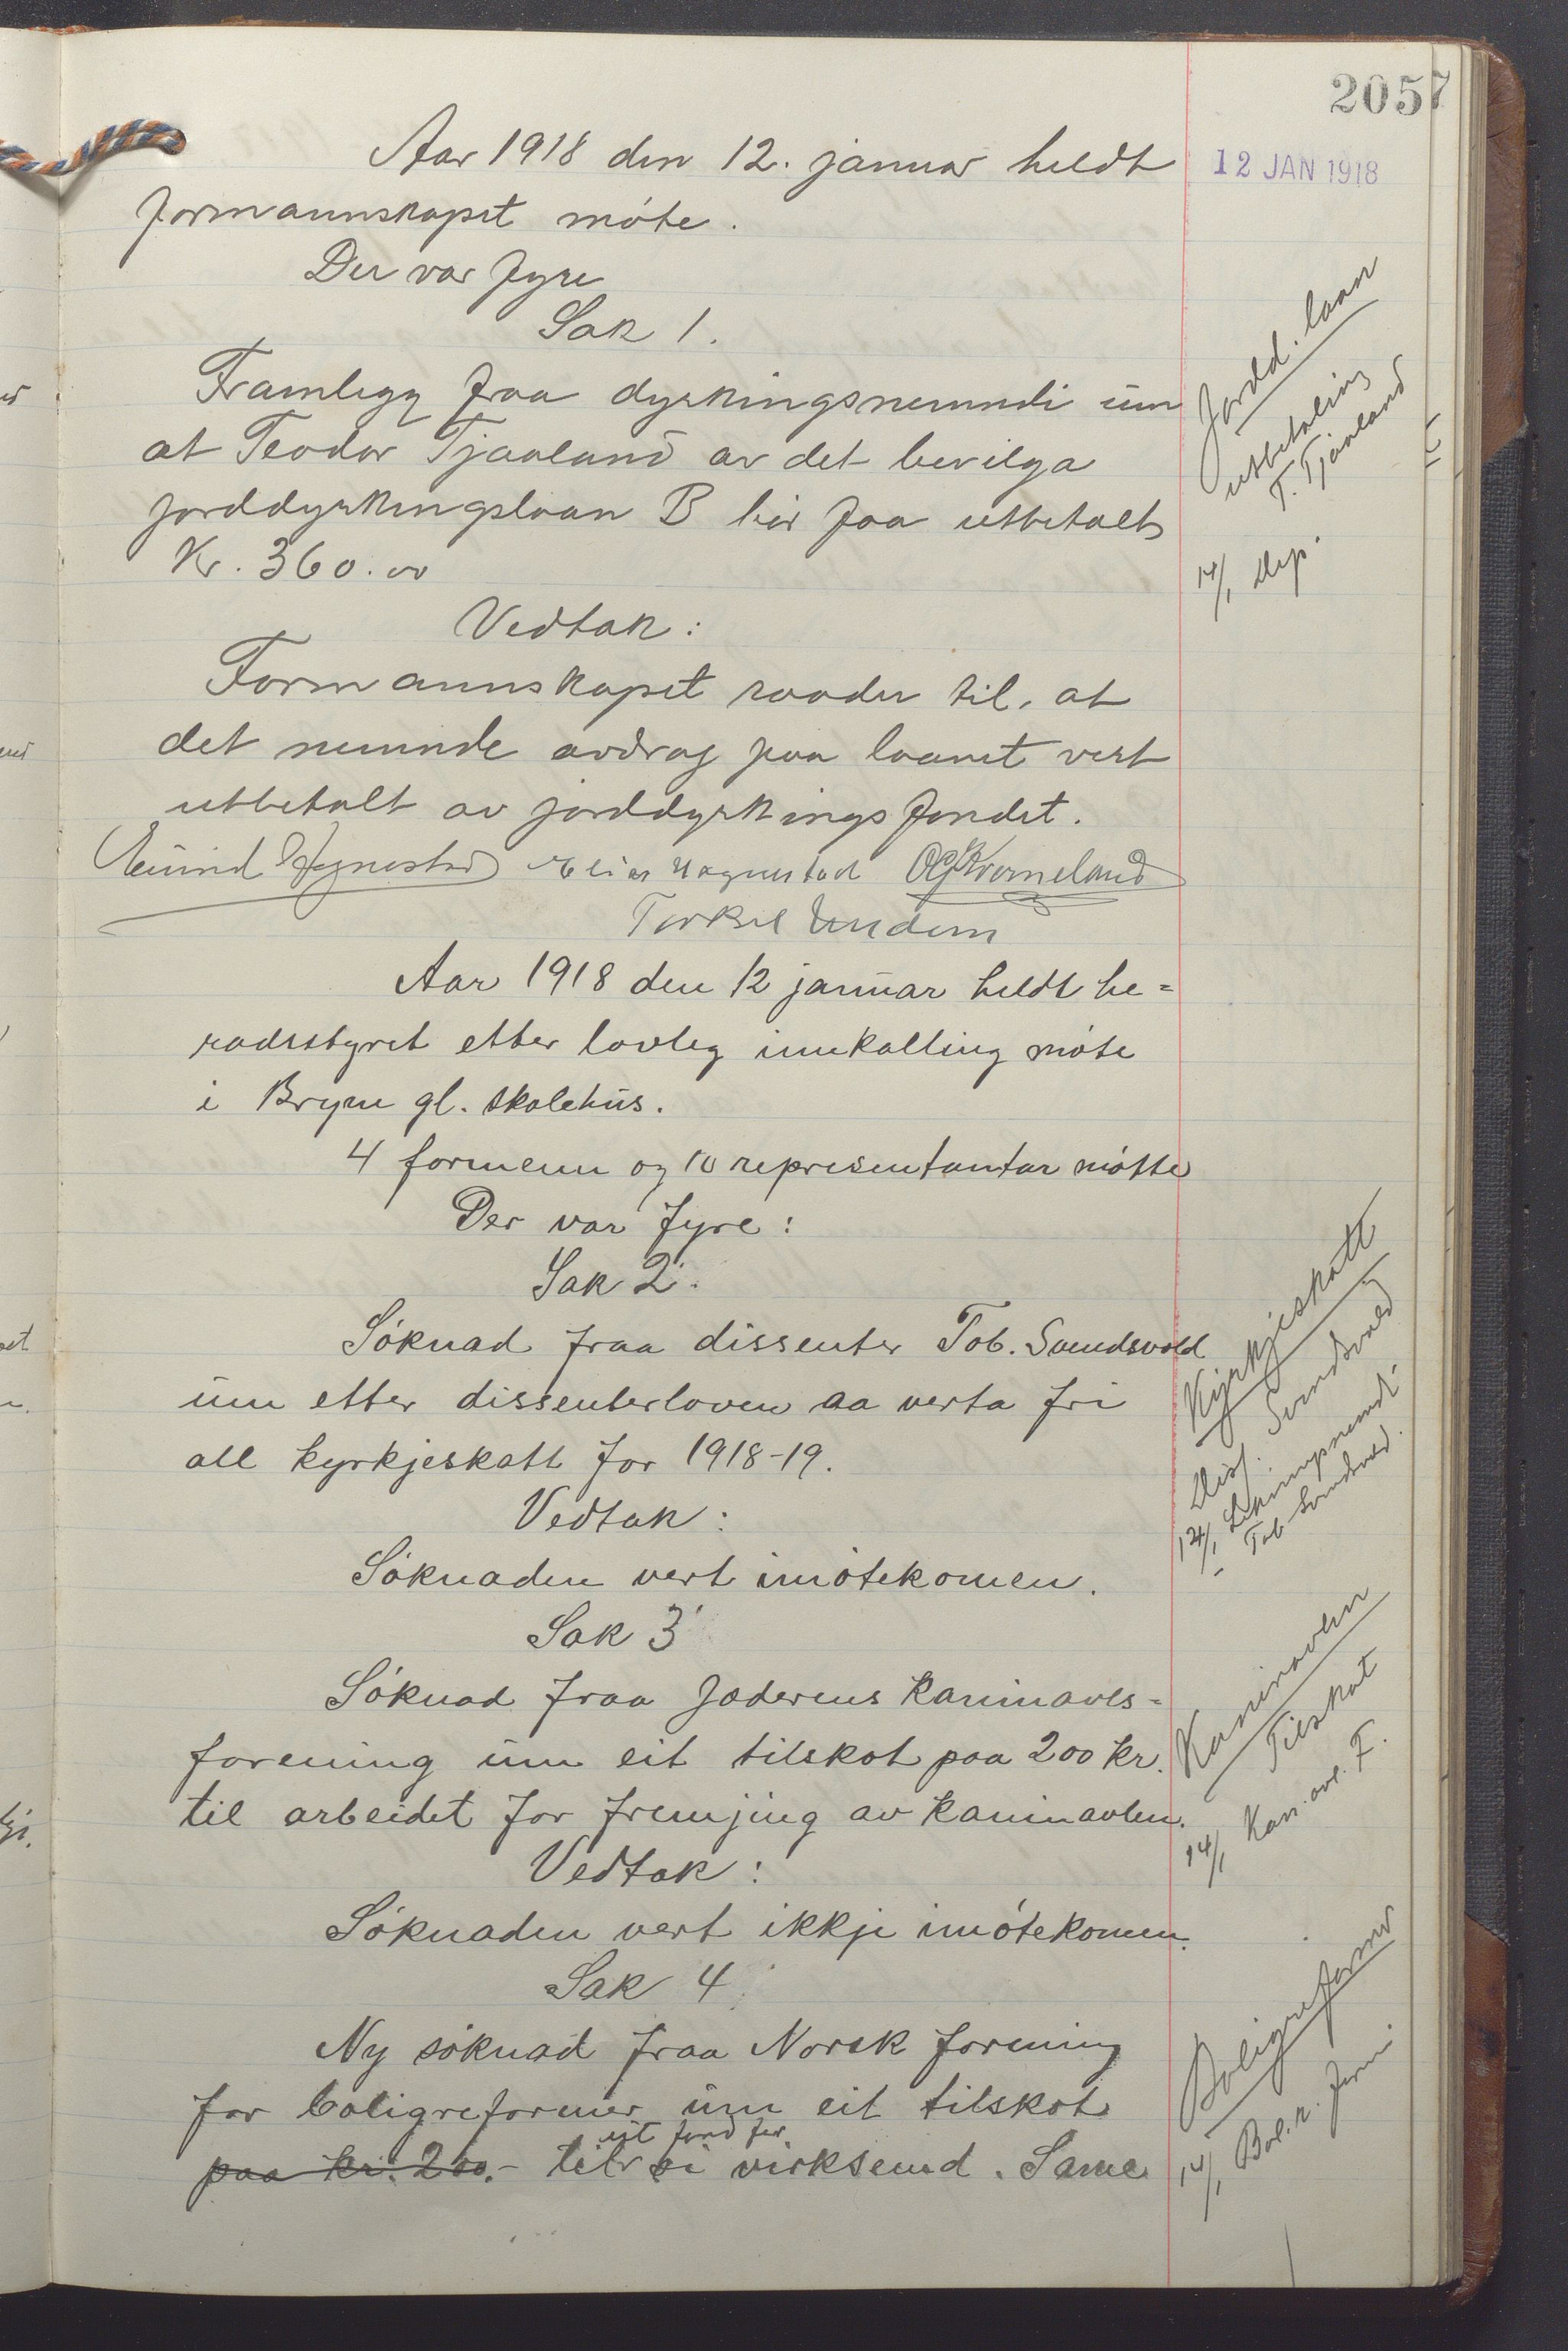 2057
12 JAN 1918
Aar 1918 den 12. januar heldt
formannskapet móte.
Der var fyre
Sak 1.
Framlegg fraa dyrkingsnemndi um
at Teodor Tjaaland av det bevilga
jorddyrkingslaan B bór faa utbetalt
Kr. 360.00
Jordd. laan
utbetaling
T. Tjaaland
14/1 Utsp.
Vedtak:
Formannskapet raader til, at
det nemnde avdrag paa laanet vert
utbetalt av jorddyrkingsfondet.
Eivind Hognestad Elias Hognestad OGKverneland
Torkel Undem
Aar 1918 den 12 januar heldt he=
radsstyret etter lovleg innkalling móte
i Bryne gl. skolehus.
4 formenn og 10 representantar mótte
Der var fyre:
Sak 2.
Sóknad fraa dissenter Tob. Svendsvold
um etter dissenterloven aa verta fri
all kyrkjeskatt for 1918-19.
Kyrkjeskatt
Diss. Svendsvold
14/1 Likningsnemdi
Tob Svendsvold.
Vedtak:
Sóknaden vert imótekomen.
Sak 3
Sóknad fraa Jæderens Kaninavls=
forening um eit tilskot paa 200 kr.
til arbeidet for fremjing av kaninavlen.
Kaninavlen
Tilskot
14/1 Kan. avl. F.
Vedtak:
Sóknaden vert ikkje imótekomen.
Sak 4
Ny sóknad fraa Norsk forening
for boligreformer um eit tilskot
eit fond for
paa kr. 200.- til si virksemd. Same
Boligreformer
14/1 Bol. r. foren.